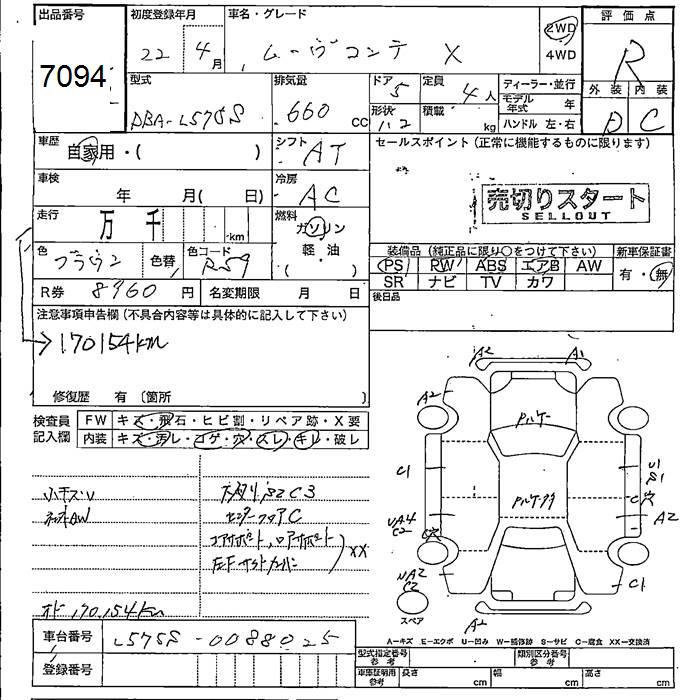 出品番号
7094
初度登録年月
22 4月
車名・グレード
ムーヴコンテ X
2WD
4WD
評価点
R
外装 内装
D C
型式
DBA-L575S
排気量
660 cc
ドア 5
形状
定員 4人
積載 kg
ディーラー・並行
モデル年式 年
ハンドル 左・右
車歴
自家用・( )
シフト
AT
セールスポイント (正常に機能するものに限ります)
売切りスタート
SELLOUT
車検
年 月( 日)
冷房
AC
走行
万 千 km
燃料
ガソリン
軽・油
( )
色
ブラウン
色替
色コード
R59
装備品 (純正品に限り〇をつけて下さい)
新車保証書
PS RW ABS エアB AW
有・無
SR ナビ TV カワ
R券 8960 円
名変期限 月 日
後日品
注意事項申告欄 (不具合内容等は具体的に記入して下さい)
170154km
修復歴 有 (箇所 )
検査員記入欄
FW キズ・飛石・ヒビ割・リペア跡・X要
内装 キズ・汚レ・コゲ・穴・スレ・キレ・破レ
小キズU
下廻りS2C3
センターフロアC
コアサポート、ロアサポート
左Fサイドメンバー
XX
オド 170,154km
A2 A1
A2
C1
U1
S1
C穴
A2
UA4
C2
C穴
UA2
C2
C1
A2
スペア
A-キズ E-エクボ U-凹み W-補修跡 S-サビ C-腐食 XX-交換済
車台番号
L575S-0088025
登録番号
型式指定番号 参考
類別区分番号 参考
車庫証明用 参考
長さ cm
幅 cm
高さ cm